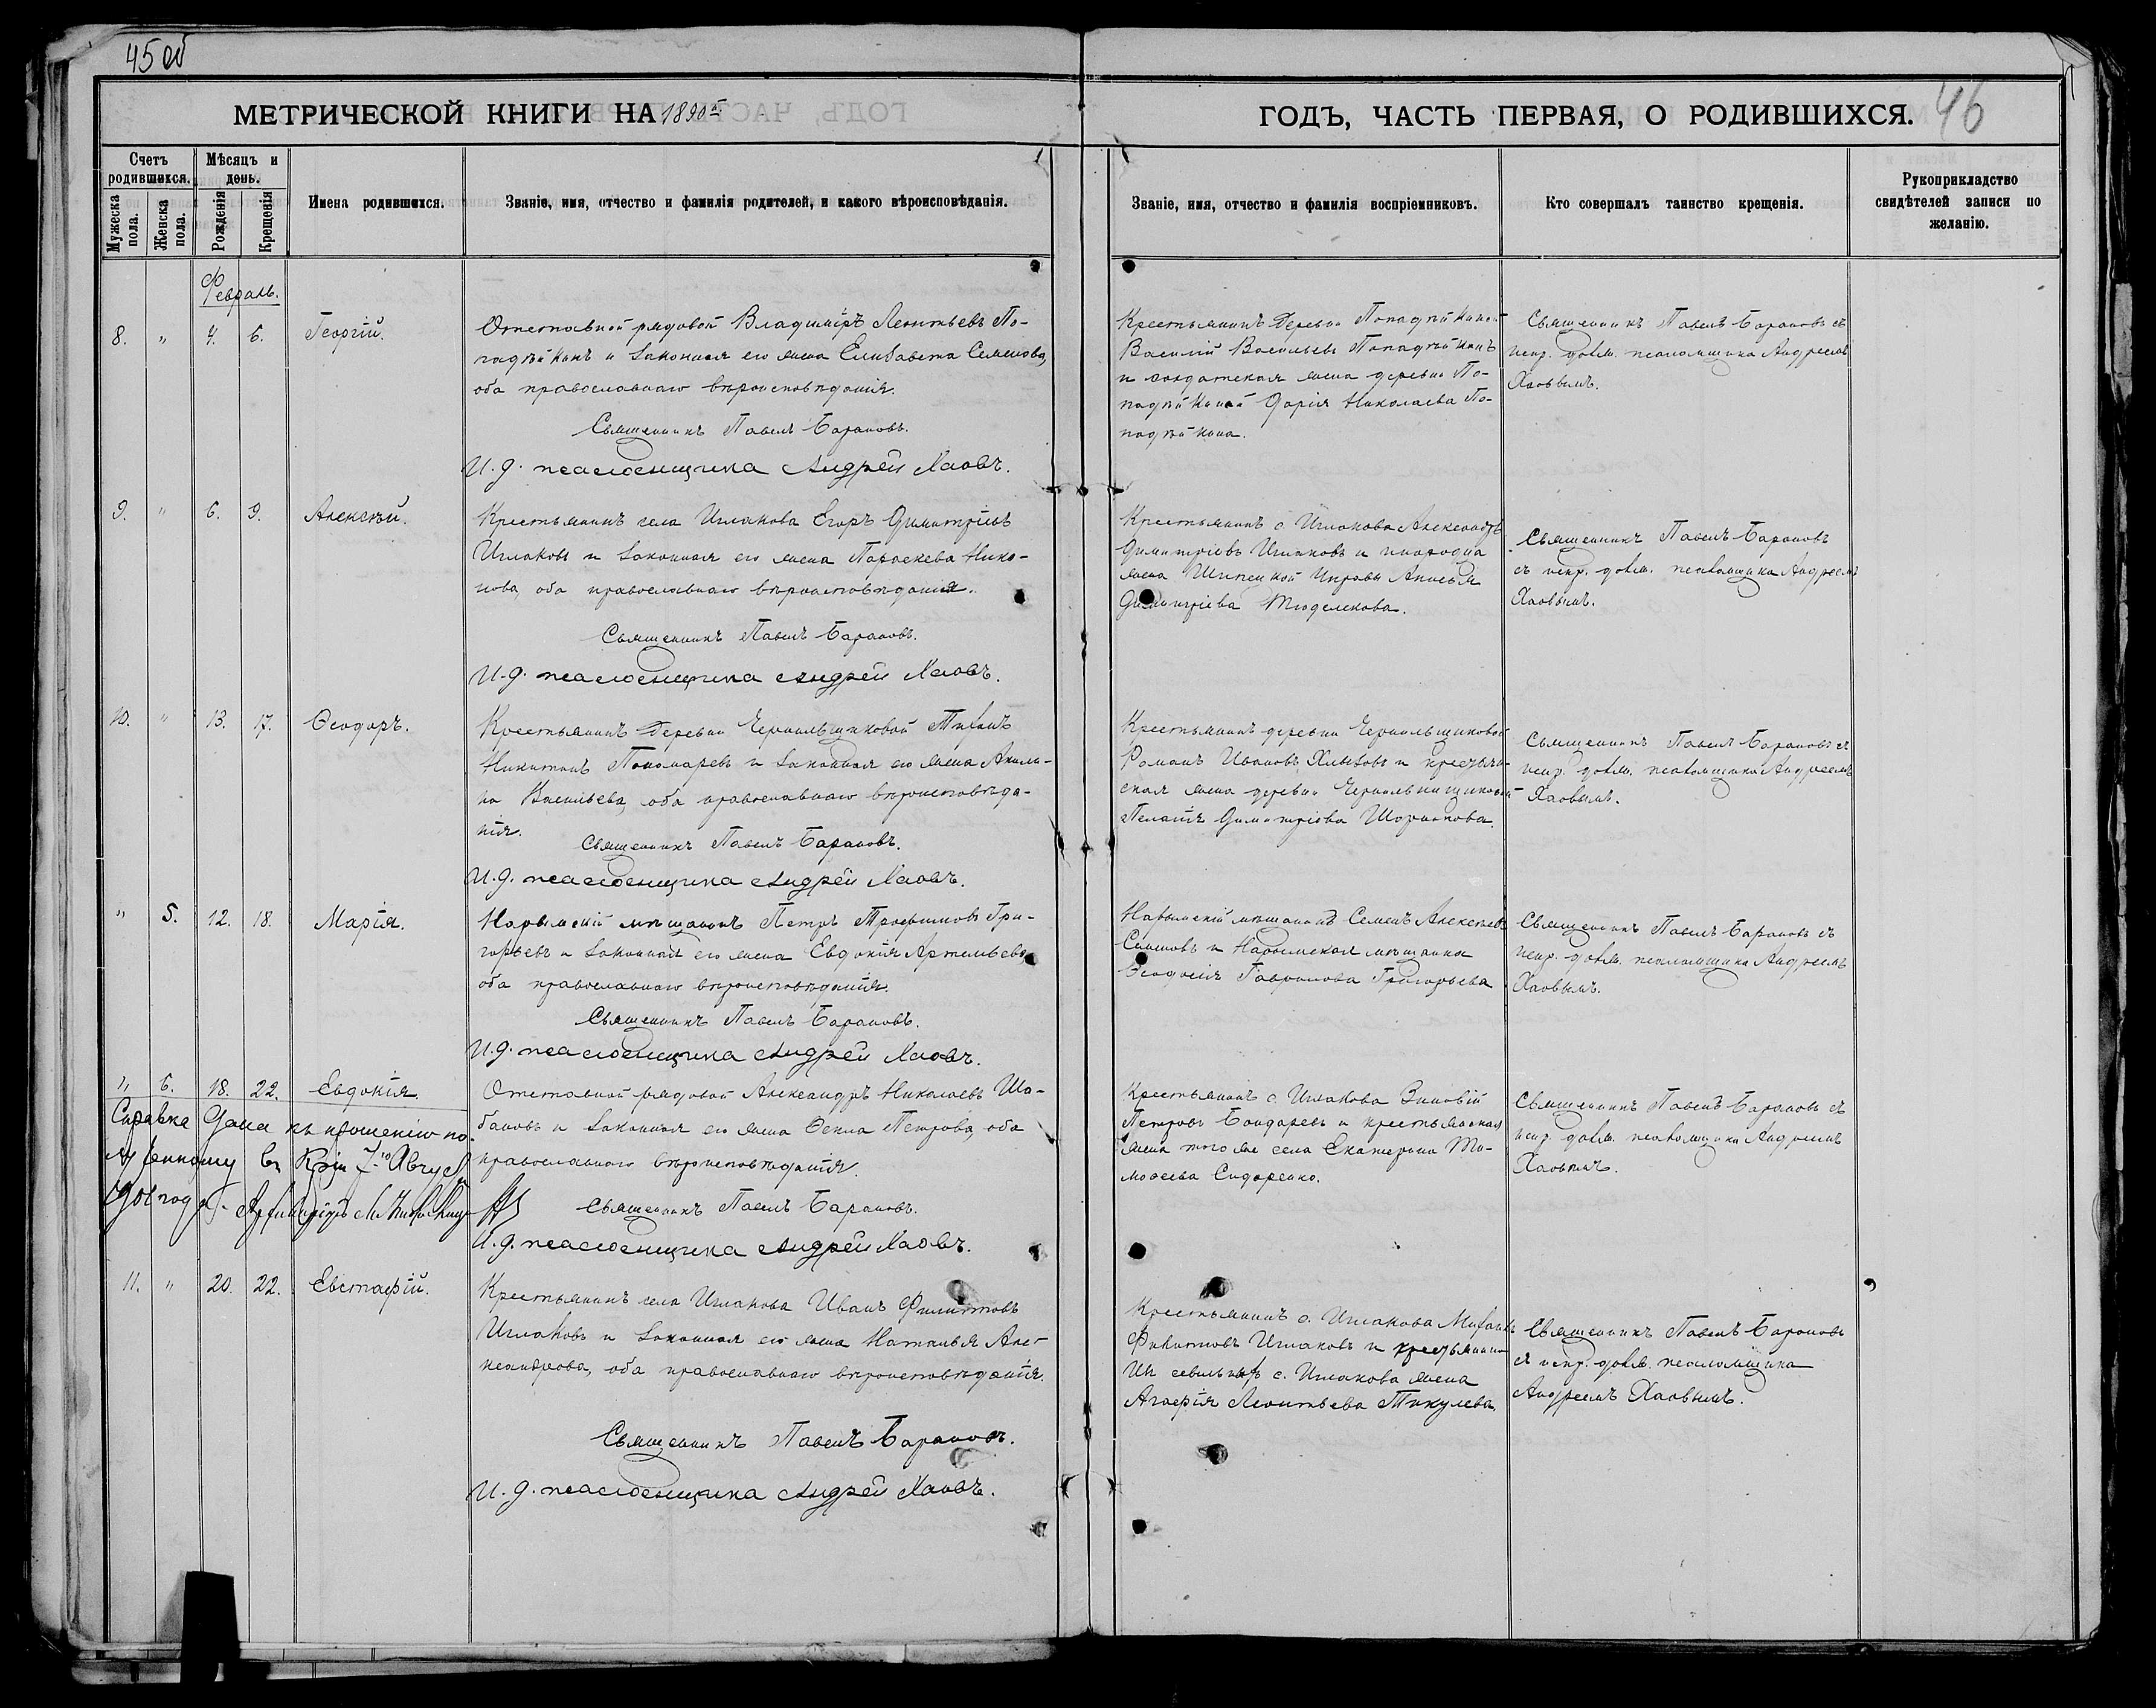 45 об
МЕТРИЧЕСКОЙ КНИГИ НА 1890й
ГОДЪ, ЧАСТЬ ПЕРВАЯ, О РОДИВШИХСЯ. 46
Счетъ родившихся.
Мѣсяцъ и день.
Мужеска пола.
Женска пола.
Рожденія
Крещенія
Имена родившихся.
Званіе, имя, отчество и фамилія родителей, и какого вѣроисповѣданія.
Званіе, имя, отчество и фамилія воспріемниковъ.
Кто совершалъ таинство крещенія.
Рукоприкладство свидѣтелей записи по желанію.
Февраль.
8. " 4. 6. Георгій.
Отставной рядовой Владиміръ Леонтьевъ По-
падѣйкинъ и законная его жена Елизавета Семенова,
оба православнаго вѣроисповѣданія.
Священникъ Павелъ Барановъ.
И. д. псаломщика Андрей Хаовъ.
Крестьянинъ деревни Попадѣйкиной
Василій Васильевъ Попадѣйкинъ
и солдатская жена деревни По-
падѣйкиной Дарія Николаева По-
падѣйкина.
Священникъ Павелъ Барановъ съ
испр. должн. псаломщика Андреемъ
Хаовымъ.
9. " 6. 9. Алексѣй.
Крестьянинъ села Ишакова Егоръ Димитріевъ
Ишаковъ и законная его жена Параскева Нико-
нова, оба православнаго вѣроисповѣданія.
Священникъ Павелъ Барановъ.
И. д. псаломщика Андрей Хаовъ.
Крестьянинъ с. Ишакова Александръ
Димитріевъ Ишаковъ и инородца
жена Шепецкой Управы Анисья
Димитріева Тюделекова.
Священникъ Павелъ Барановъ
съ испр. должн. псаломщика Андреемъ
Хаовымъ.
10. " 13. 17. Ѳеодоръ.
Крестьянинъ деревни Чернильщиковой Тихонъ
Никитинъ Пономаревъ и законная его жена Акили-
на Васильева, оба православнаго вѣроисповѣда-
нія.
Священникъ Павелъ Барановъ.
И. д. псаломщика Андрей Хаовъ.
Крестьянинъ деревни Чернильщиковой
Романъ Ивановъ Хлызовъ и крестьян-
ская жена деревни Чернильщиковой
Пелагія Димитріева Шорникова.
Священникъ Павелъ Барановъ съ
испр. должн. псаломщика Андреемъ
Хаовымъ.
" 5. 12. 18. Марія.
Нарымскій мѣщанинъ Петръ Трофимовъ Гри-
горьевъ и законная его жена Евдокія Артемьева,
оба православнаго вѣроисповѣданія.
Священникъ Павелъ Барановъ.
И. д. псаломщика Андрей Хаовъ.
Нарымскій мѣщанинъ Семенъ Алексѣевъ
и Нарымская мѣщанка
Ѳеодосія Гаврилова Григорьева
Священникъ Павелъ Барановъ съ
испр. должн. псаломщика Андреемъ
Хаовымъ.
" 6. 18. 22. Евдокія.
Отставной рядовой Александръ Николаевъ Ша-
бановъ и законная его жена Ѳекла Петрова, оба
православнаго вѣроисповѣданія.
Священникъ Павелъ Барановъ.
И. д. псаломщика Андрей Хаовъ.
Крестьянинъ с. Ишакова Зиновій
Петровъ Бондаревъ и крестьянская
жена того же села Екатерина Ти-
моѳеева Сидоренко.
Священникъ Павелъ Барановъ съ
испр. должн. псаломщика Андреемъ
Хаовымъ.
Справка дана къ прошенію по-
7-го Август
года.
11. " 20. 22. Евстафій.
Крестьянинъ села Ишакова Иванъ Филиповъ
Ишаковъ и законная его жена Наталья Але-
ксандрова, оба православнаго вѣроисповѣданія.
Священникъ Павелъ Барановъ.
И. д. псаломщика Андрей Хаовъ.
Крестьянинъ с. Ишакова Михаилъ
Филиповъ Ишаковъ и крестьянина
с. Ишакова жена
Агафія Леонтьева Тикулева.
Священникъ Павелъ Барановъ
съ испр. должн. псаломщика
Андреемъ Хаовымъ.